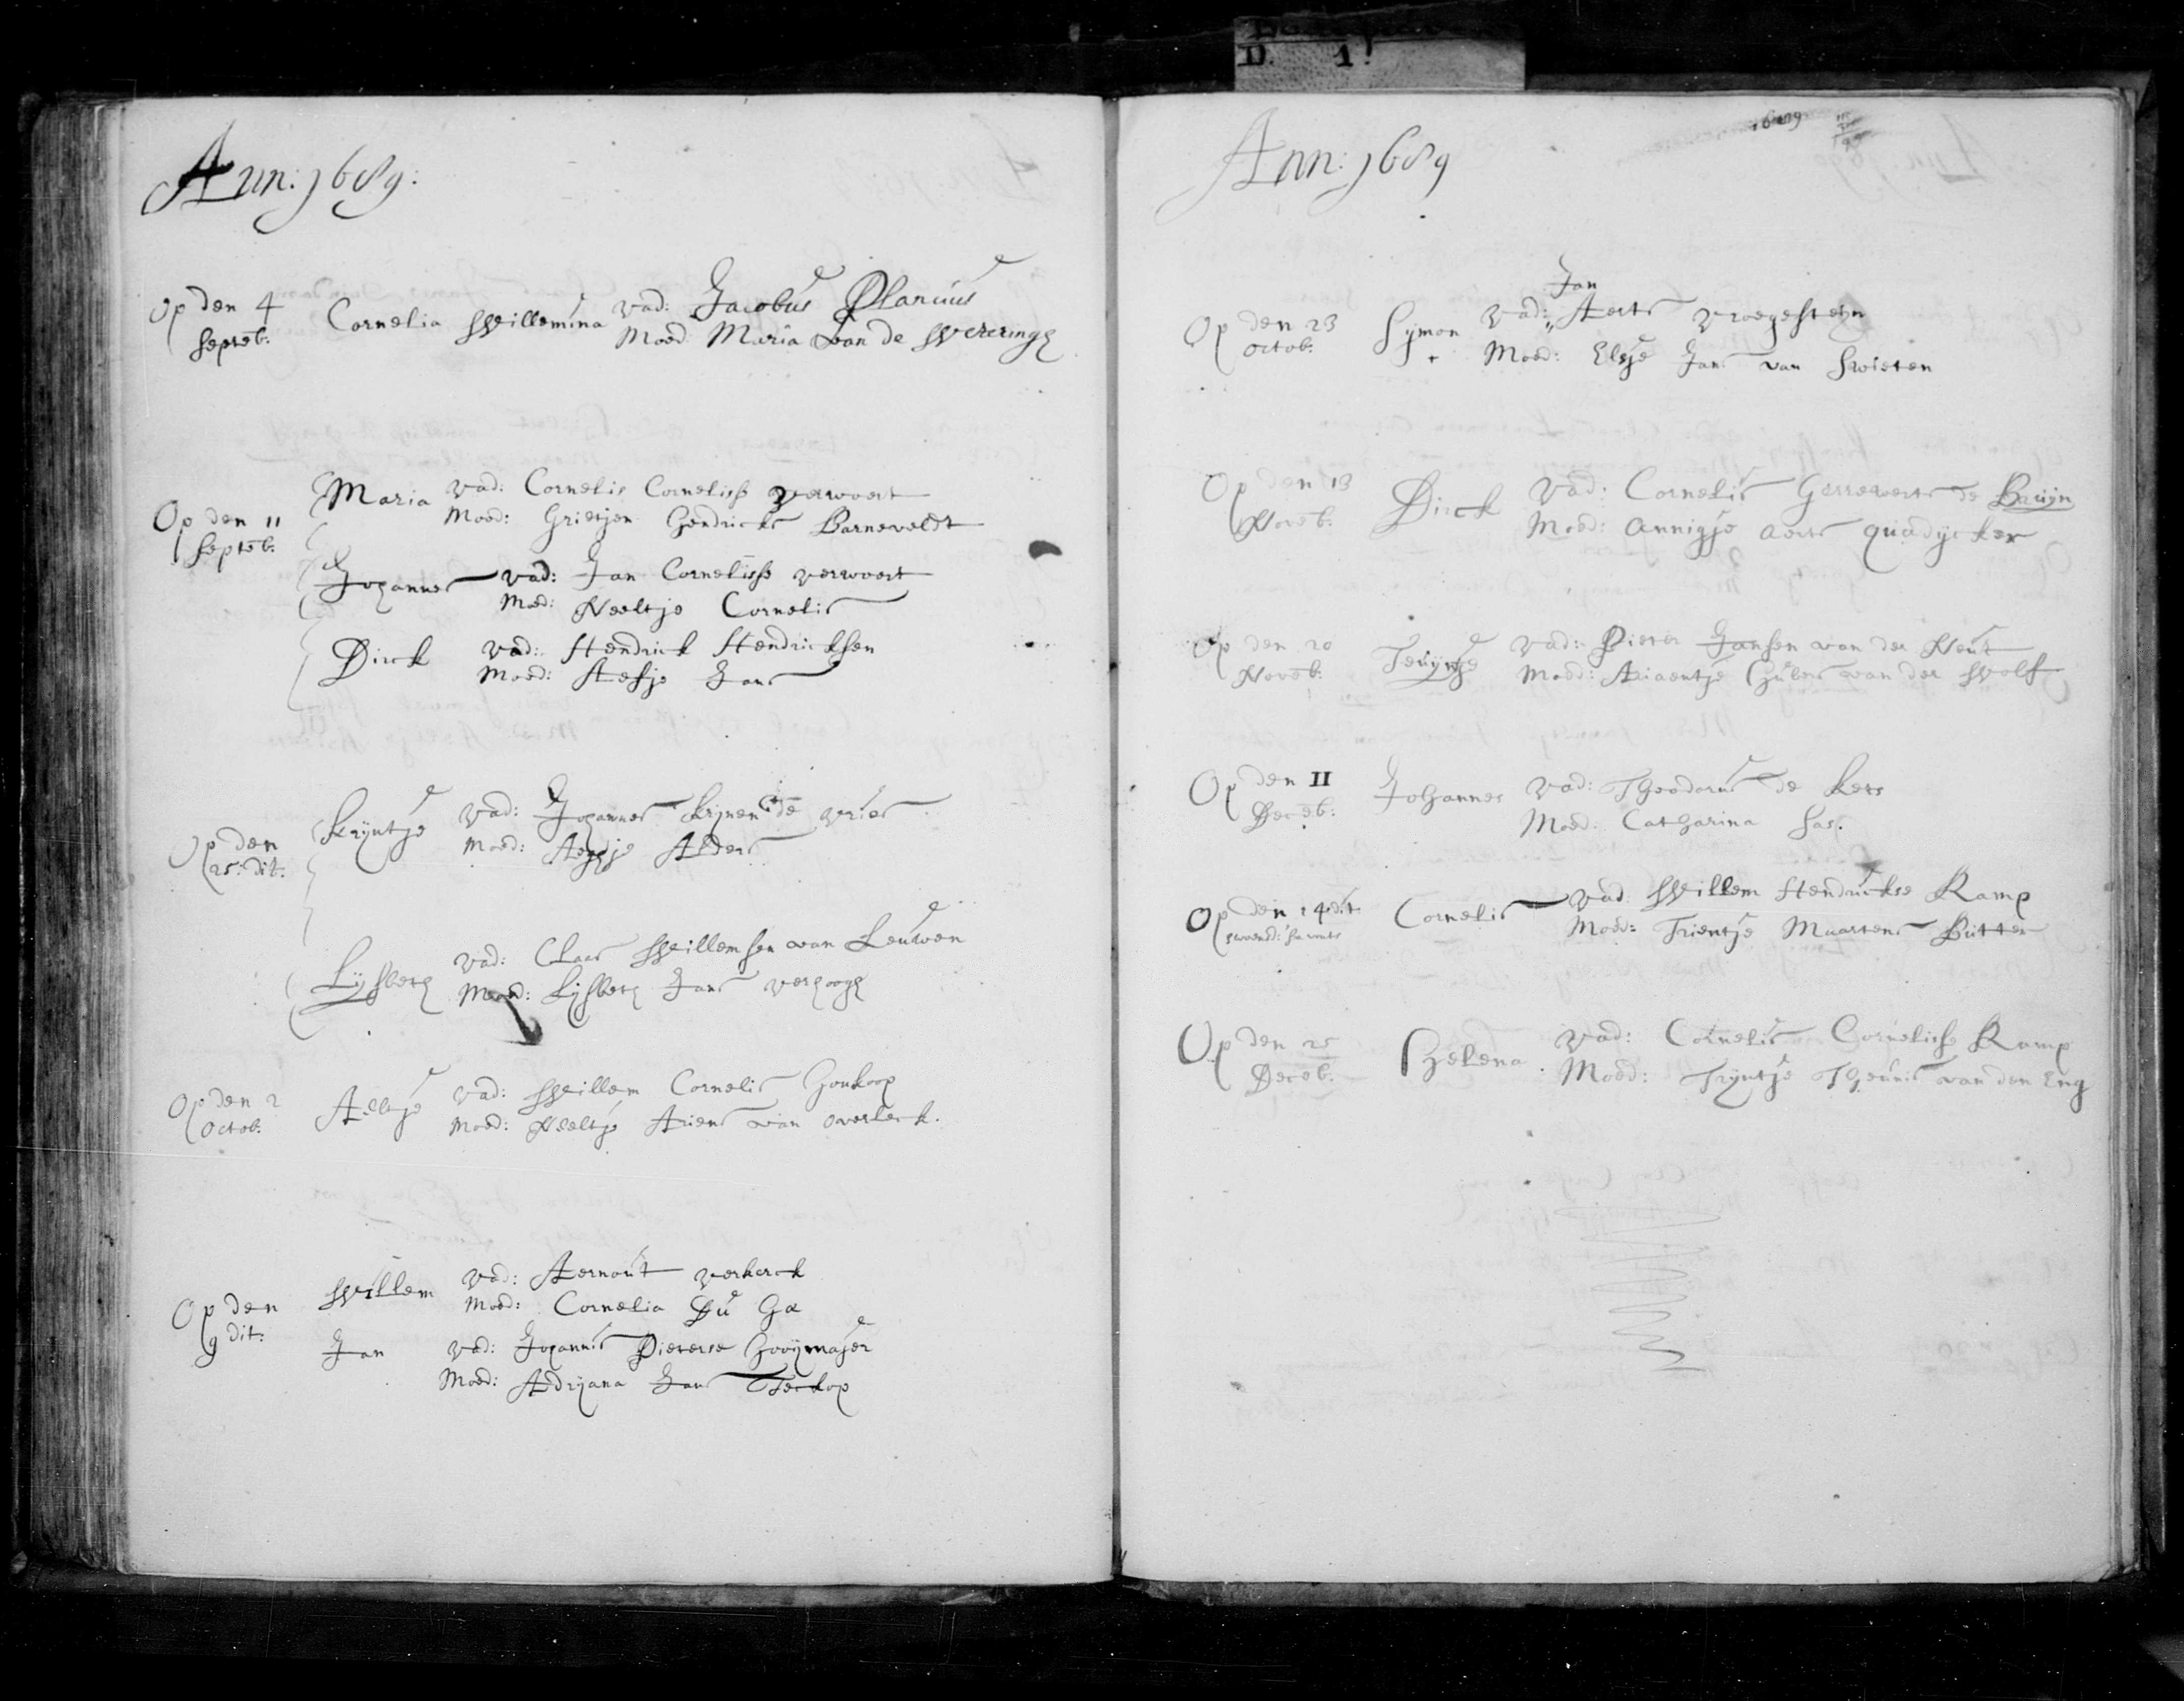 D. 1.
Ann: 1689:
Op den 4 Septeb: Cornelia Willemina vad: Jacobus Plancius
Moed Maria van de Weteringh
Op den 11 Septeb: Maria vad: Cornelis Cornelisse verwoert
Moed: Grietjen Hendricks Barneveldt
Johannes vad: Jan Cornelisse verwoert
Moed: Neeltje Cornelis
Dirck vad: Hendrick Hendricksen
Moed: Aefje Jans
Op den 25: dit: Krijntje vad: Johannes Krijnen de vries
Moed: Aeghje Alders
Lijsbeth vad: Claas Willemsen van Leuwen
Moed: Lijsbeth Jans verhoogh
Op den 2 Octob: Aeltje vad: Willem Cornelis Honkoop
Moed: Neeltje Ariens van overleck.
Op den 9 dit: Willem vad: Aernout verkerck
Moed: Cornelia Du Gæ
Jan vad: Johannis Pieterse Hooijmajer
Moed: Adrijana Jans Teckop
1689
Ann: 1689
Jan
Op den 23 Octob: Sijmon vad: Aerts vroegesteijn
Moed: Elsje Jans van Swieten
Op den 13 Noveb: Dirck vad: Cornelis Gerreverts de Bruijn
Moed: Annigje Aerts quadijcker
Op den 20 Noveb: Teuntje vad: Pieter Jansen van der Neut
Moed: Ariaentje Huberts van der Wolf
Op den II Deceb: Johannes vad: Theodorus de Kets
Moed: Catharina Sas.
Op den 14 dit: Cornelis vad Willem Hendrickse Kamp
Moed: Trientje Maartens Butter
Op den 25 Deceb: Helena. vad: Cornelis Cornelisse Kamp
Moed: Trijntje Theunis van den Eng